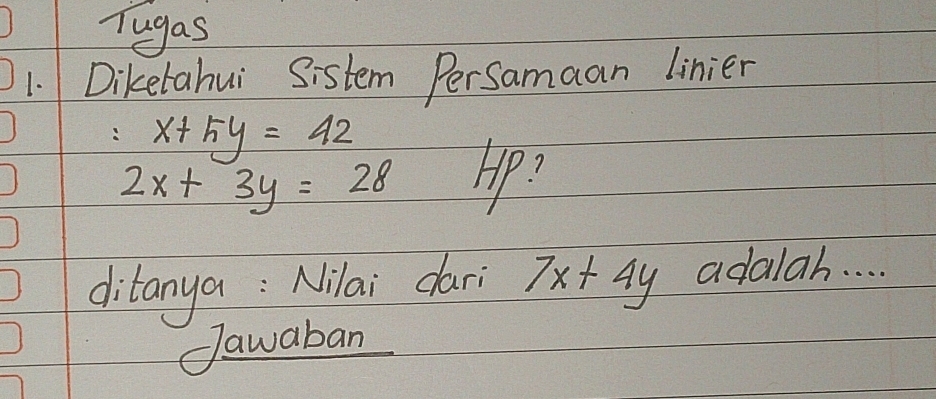 Tugas
1. Diketahui Sistem Persamaan linier
: x + 5y = 42
2x + 3y = 28 HP?
ditanya : Nilai dari 7x + 4y adalah....
Jawaban